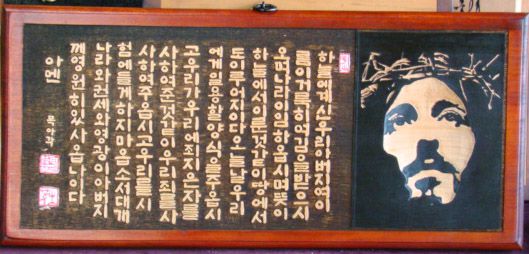 하늘에계신우리아버지여이
름이거룩히여김을받으시
오며나라이임하옵시며뜻이
하늘에서이룬것같이땅에서
도이루어지이다오늘날우리
에게일용할양식을주옵시
고우리가우리에죄지은자를
사하여준것같이우리죄를사
사하여주옵시고우리를시
험에들게하지마옵소서대개
나라와권세와영광이아버지
께영원히있사옵나이다
아멘
목아각